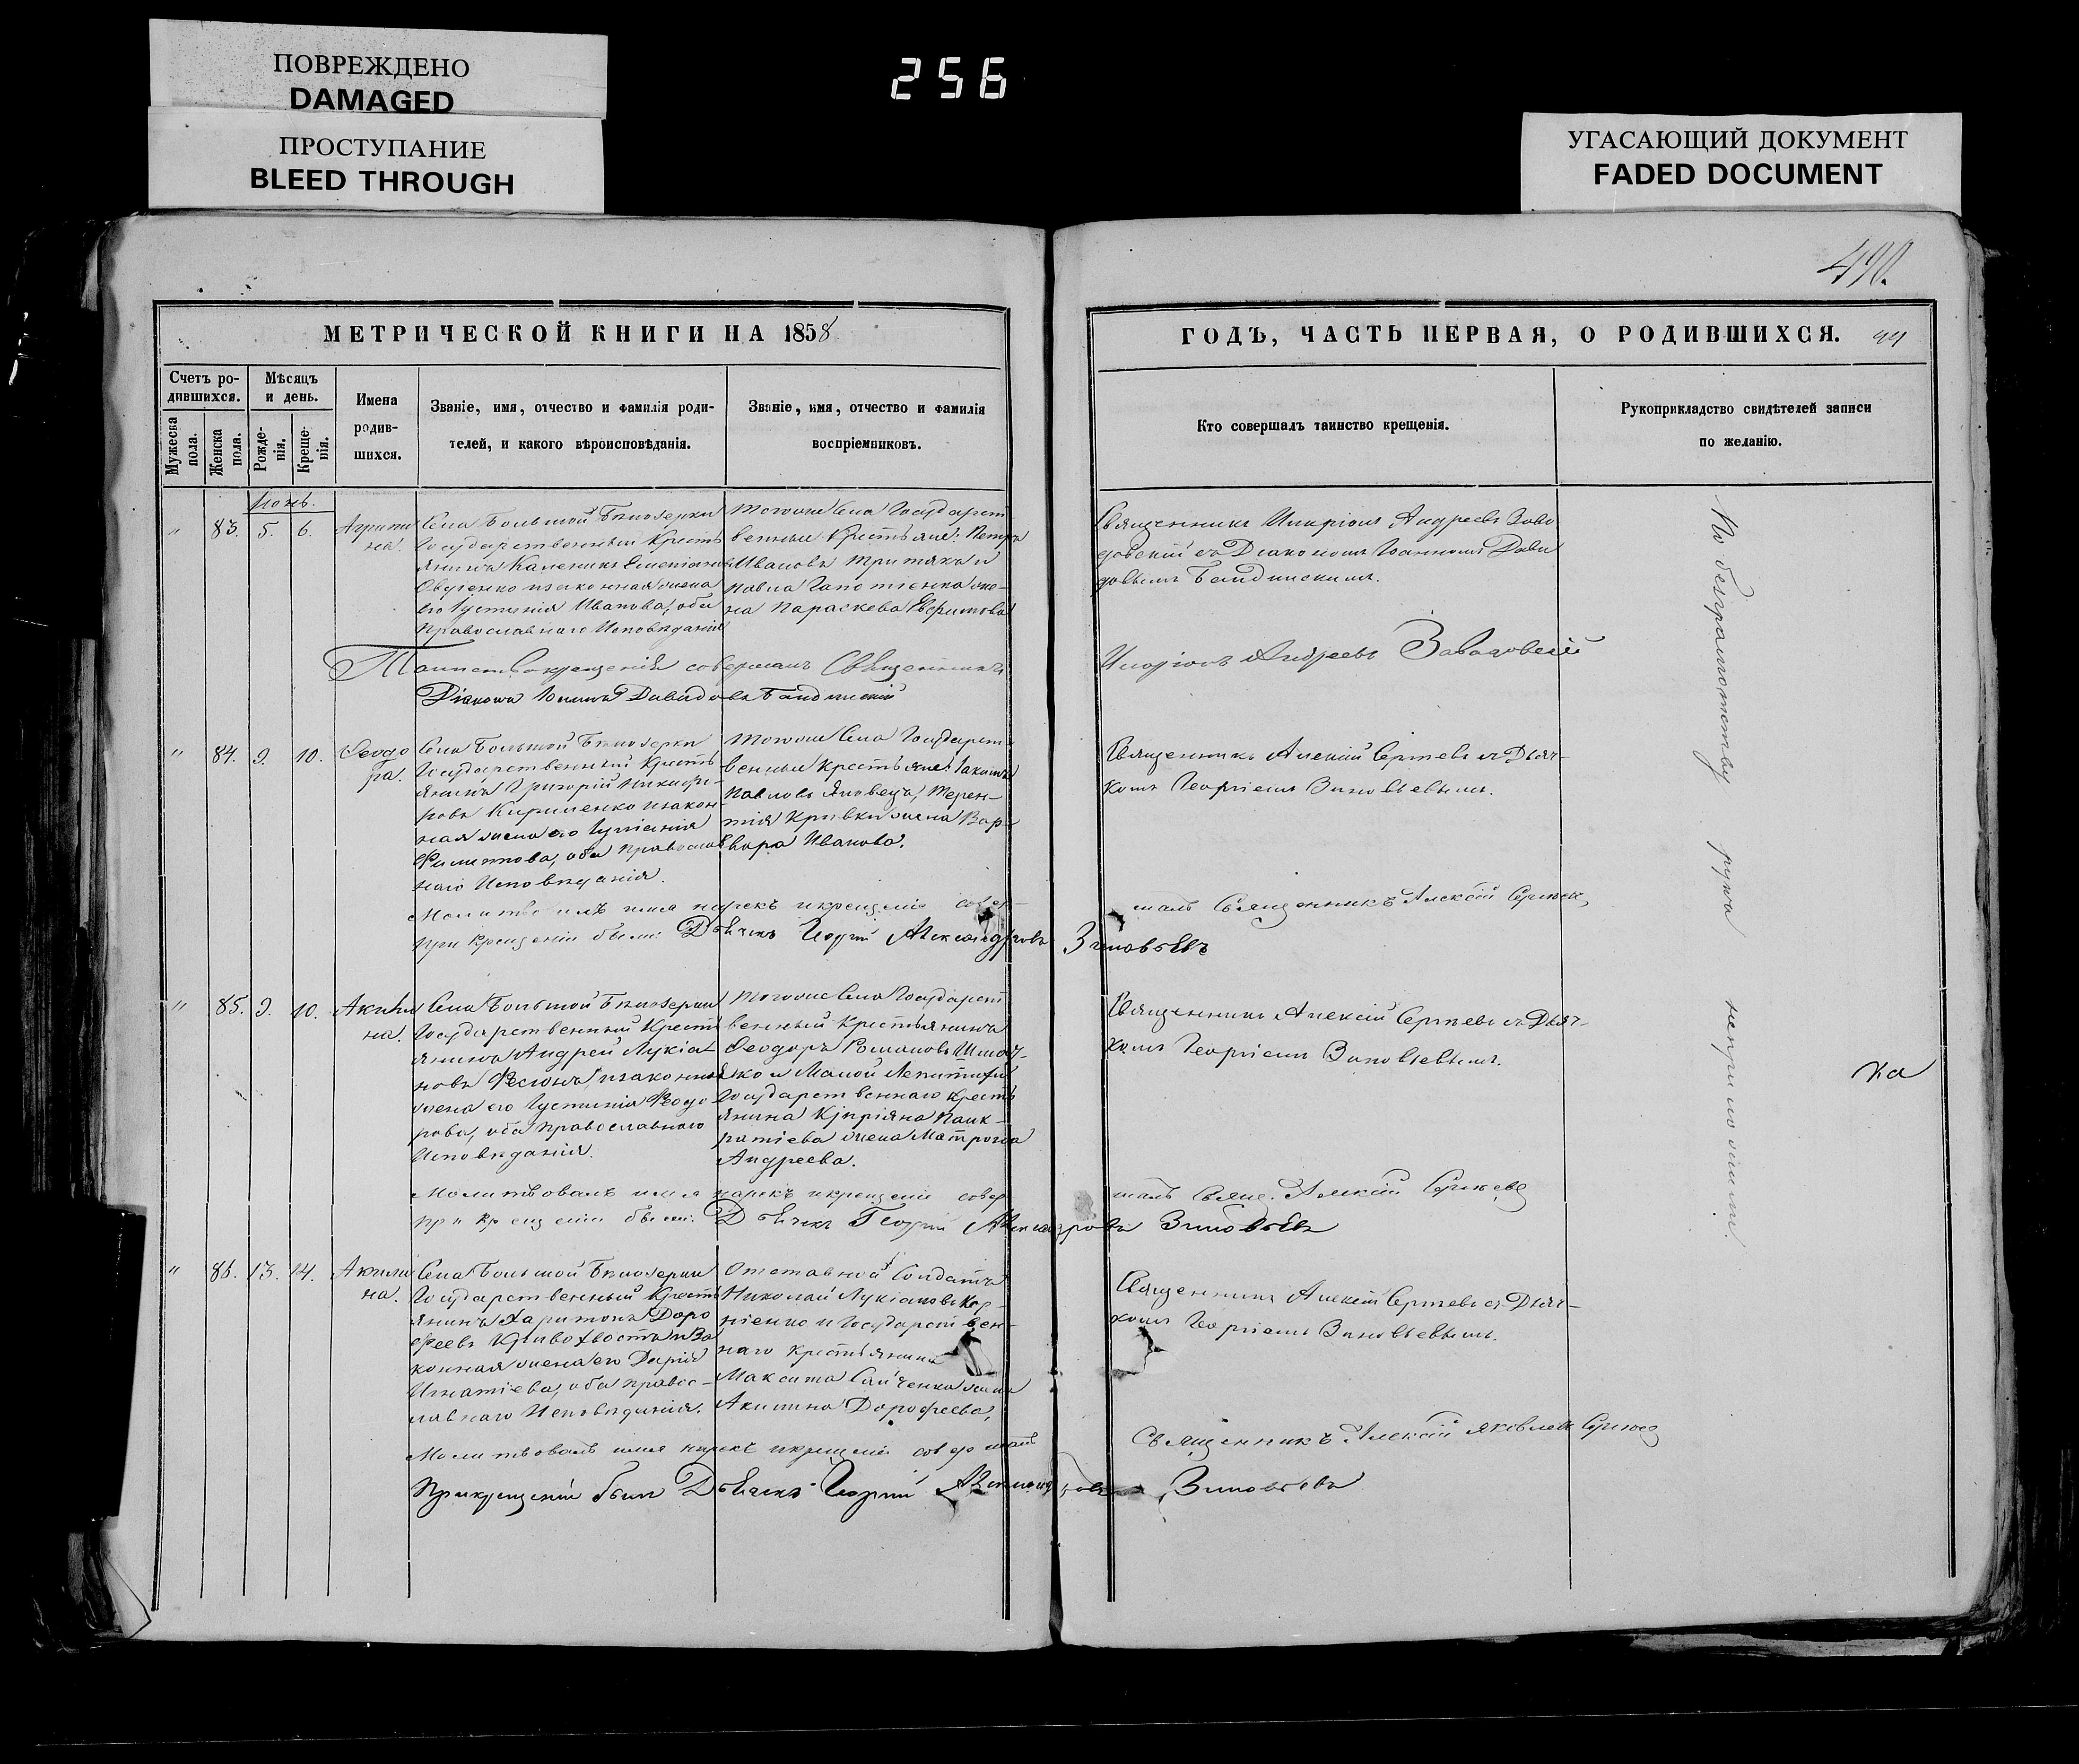 ПОВРЕЖДЕНО
DAMAGED
ПРОСТУПАНИЕ
BLEED THROUGH
256
УГАСАЮЩИЙ ДОКУМЕНТ
FADED DOCUMENT
490.
МЕТРИЧЕСКОЙ КНИГИ НА 1858
Счетъ ро-
дившихся.
Мужеска
пола.
Женска
пола.
Мѣсяцъ
и день.
Рожде-
нія.
Креще-
нія.
Имена
родив-
шихся.
Званіе, имя, отчество и фамилія роди-
телей, и какого вѣроисповѣданія.
Званіе, имя, отчество и фамилія
воспріемниковъ.
ГОДЪ, ЧАСТЬ ПЕРВАЯ, О РОДИВШИХСЯ.
Кто совершалъ таинство крещенія.
Рукоприкладство свидѣтелей записи
по желанію.
Іюнь.
" 83. 5. 6.
Агрипи
на.
Села Большой Бѣлозерки
Государственный Кресть
янинъ
законная жена
его Іустинія Иванова, оба
православнаго Исповѣданія
Тогоже Села Государст
венные Крестьяне: Петръ
Ивановъ Третякъ и
Павла Гапотченка же-
на Параскева Евфимова
Священникъ Иларіонъ Андреевъ Заво
довскій съ Діакономъ Іоанномъ Дави
довымъ
Таинство крещенія совершалъ Священникъ
Иларіонъ Андреевъ Заводовскій
Діаконъ Іоаннъ Давидовъ
" 84. 9. 10.
Ѳеодо
ра.
Села Большой Бѣлозерки
Государственный Кресть
янинъ Григорій Никифо-
ровъ Кириленко и закон-
ная жена его
Филиппова, оба православ
наго Исповѣданія.
Тогоже Села Государст-
венные Крестьяне: Іакимъ
Павловъ Яковецъ, Терен-
тія Кривки жена Вар-
вара Иванова.
Священникъ Алексій Сергѣевъ съ Дьяч-
комъ Георгіемъ Зиновьевымъ.
имя нарекъ и крещеніе совер-
шалъ Священникъ Алексій Сергѣевъ
при крещеніи былъ: Дьячекъ Георгій Александровъ Зиновьевъ
" 85. 9. 10.
Акили
на.
Села Большой Бѣлозерки
Государственный Кресть
янинъ Андрей Лукіа-
новъ и законная
жена его Іустинія Ѳеодо
рова, оба православнаго
Исповѣданія.
Тогоже Села Государст
венный Крестьянинъ
Ѳеодоръ Романовъ
ко и Малой Лепитихи
Государственнаго Кресть
янина Кипріяна Панк-
ратіева жена Матрона
Андреева.
Священникъ Алексій Сергѣевъ съ Дьяч-
комъ Георгіемъ Зиновьевымъ.
Молитвовалъ имя нарекъ и крещеніе совер
шалъ Свящ. Алексій Сергѣевъ
при крещеніи былъ: Дьячекъ Георгій Александровъ Зиновьевъ
" 86. 13. 14.
Акили
на.
Села Большой Бѣлозерки
Государственный Кресть
янинъ Харитонъ Доро
феевъ Кривохвостъ и За
конная жена его Дарія
Игнатіева, оба правос-
лавнаго Исповѣданія.
Отставной Солдатъ
Николай Лукіановъ Кор-
ніенко и Государствен-
наго Крестьянина
Максима Сайченка жена
Акилина Дорофеева,
Священникъ Алексій Сергѣевъ съ Дьяч-
комъ Георгіемъ Зиновьевымъ.
Молитвовалъ имя нарекъ и крещеніе совершалъ
Священникъ Алексій Яковлевъ Сергѣевъ
При крещеніи былъ Дьячекъ Георгій Александровъ Зиновьевъ
По безграмотству руки неприложили.
ка